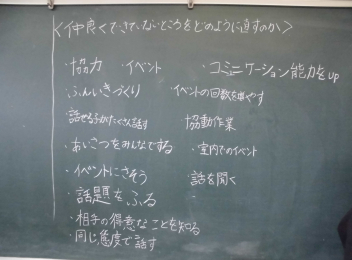 ＜仲良くできていないどころをどのように直すのか＞
・協力　・イベント　・コミニケーション能力をup
・ふんいきづくり　・イベントの回数を増やす
・話せる人がたくさん話す　・協動作業
・あいさつをみんなでする　・室内でのイベント
・イベントにさそう　・話を聞く
・話題をふる
・相手の得意なことを知る
・同じ態度で話す